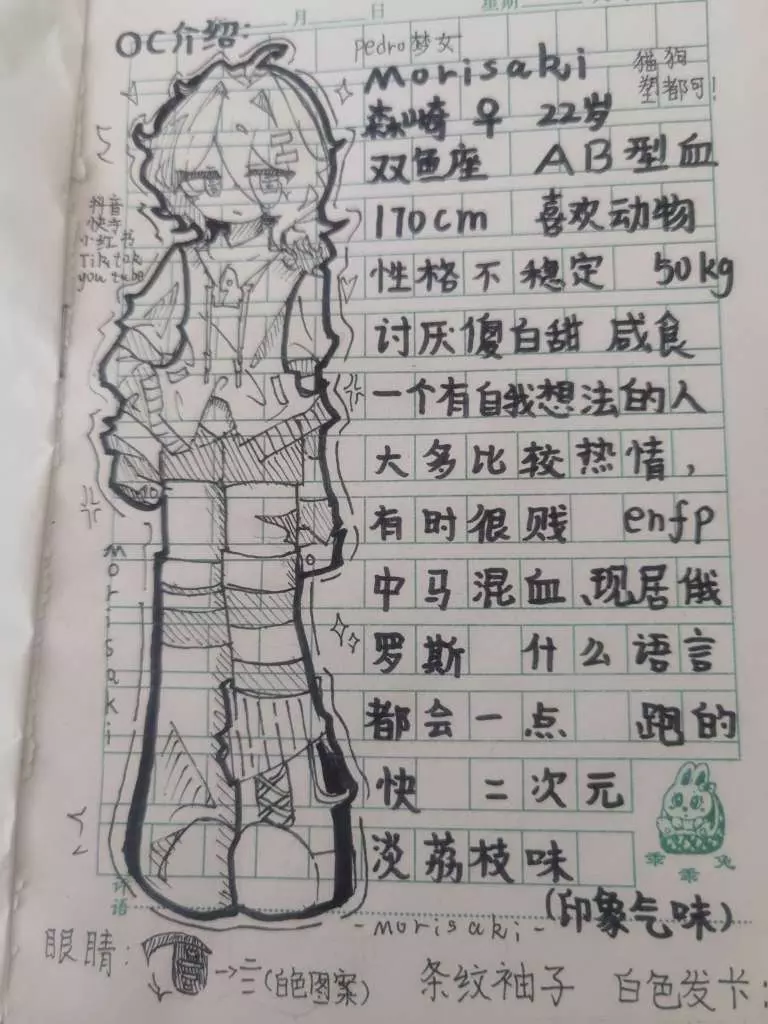 月 日 星期
OC介绍:
pedro梦女
Morisaki
猫狗
塑都可!
森崎 ♀ 22岁
双鱼座 AB型血
抖音
快手
小红书
Tiktok
youtube
170cm 喜欢动物
性格不稳定 50kg
讨厌傻白甜 咸食
一个有自我想法的人
大多比较热情,
有时很贱 enfp
中马混血、现居俄
罗斯 什么语言
都会一点 跑的
快 二次元
淡荔枝味
(印象气味)
morisaki
乖乖兔
评语
-morisaki-
眼睛: →三(白色图案) 条纹袖子 白色发卡: